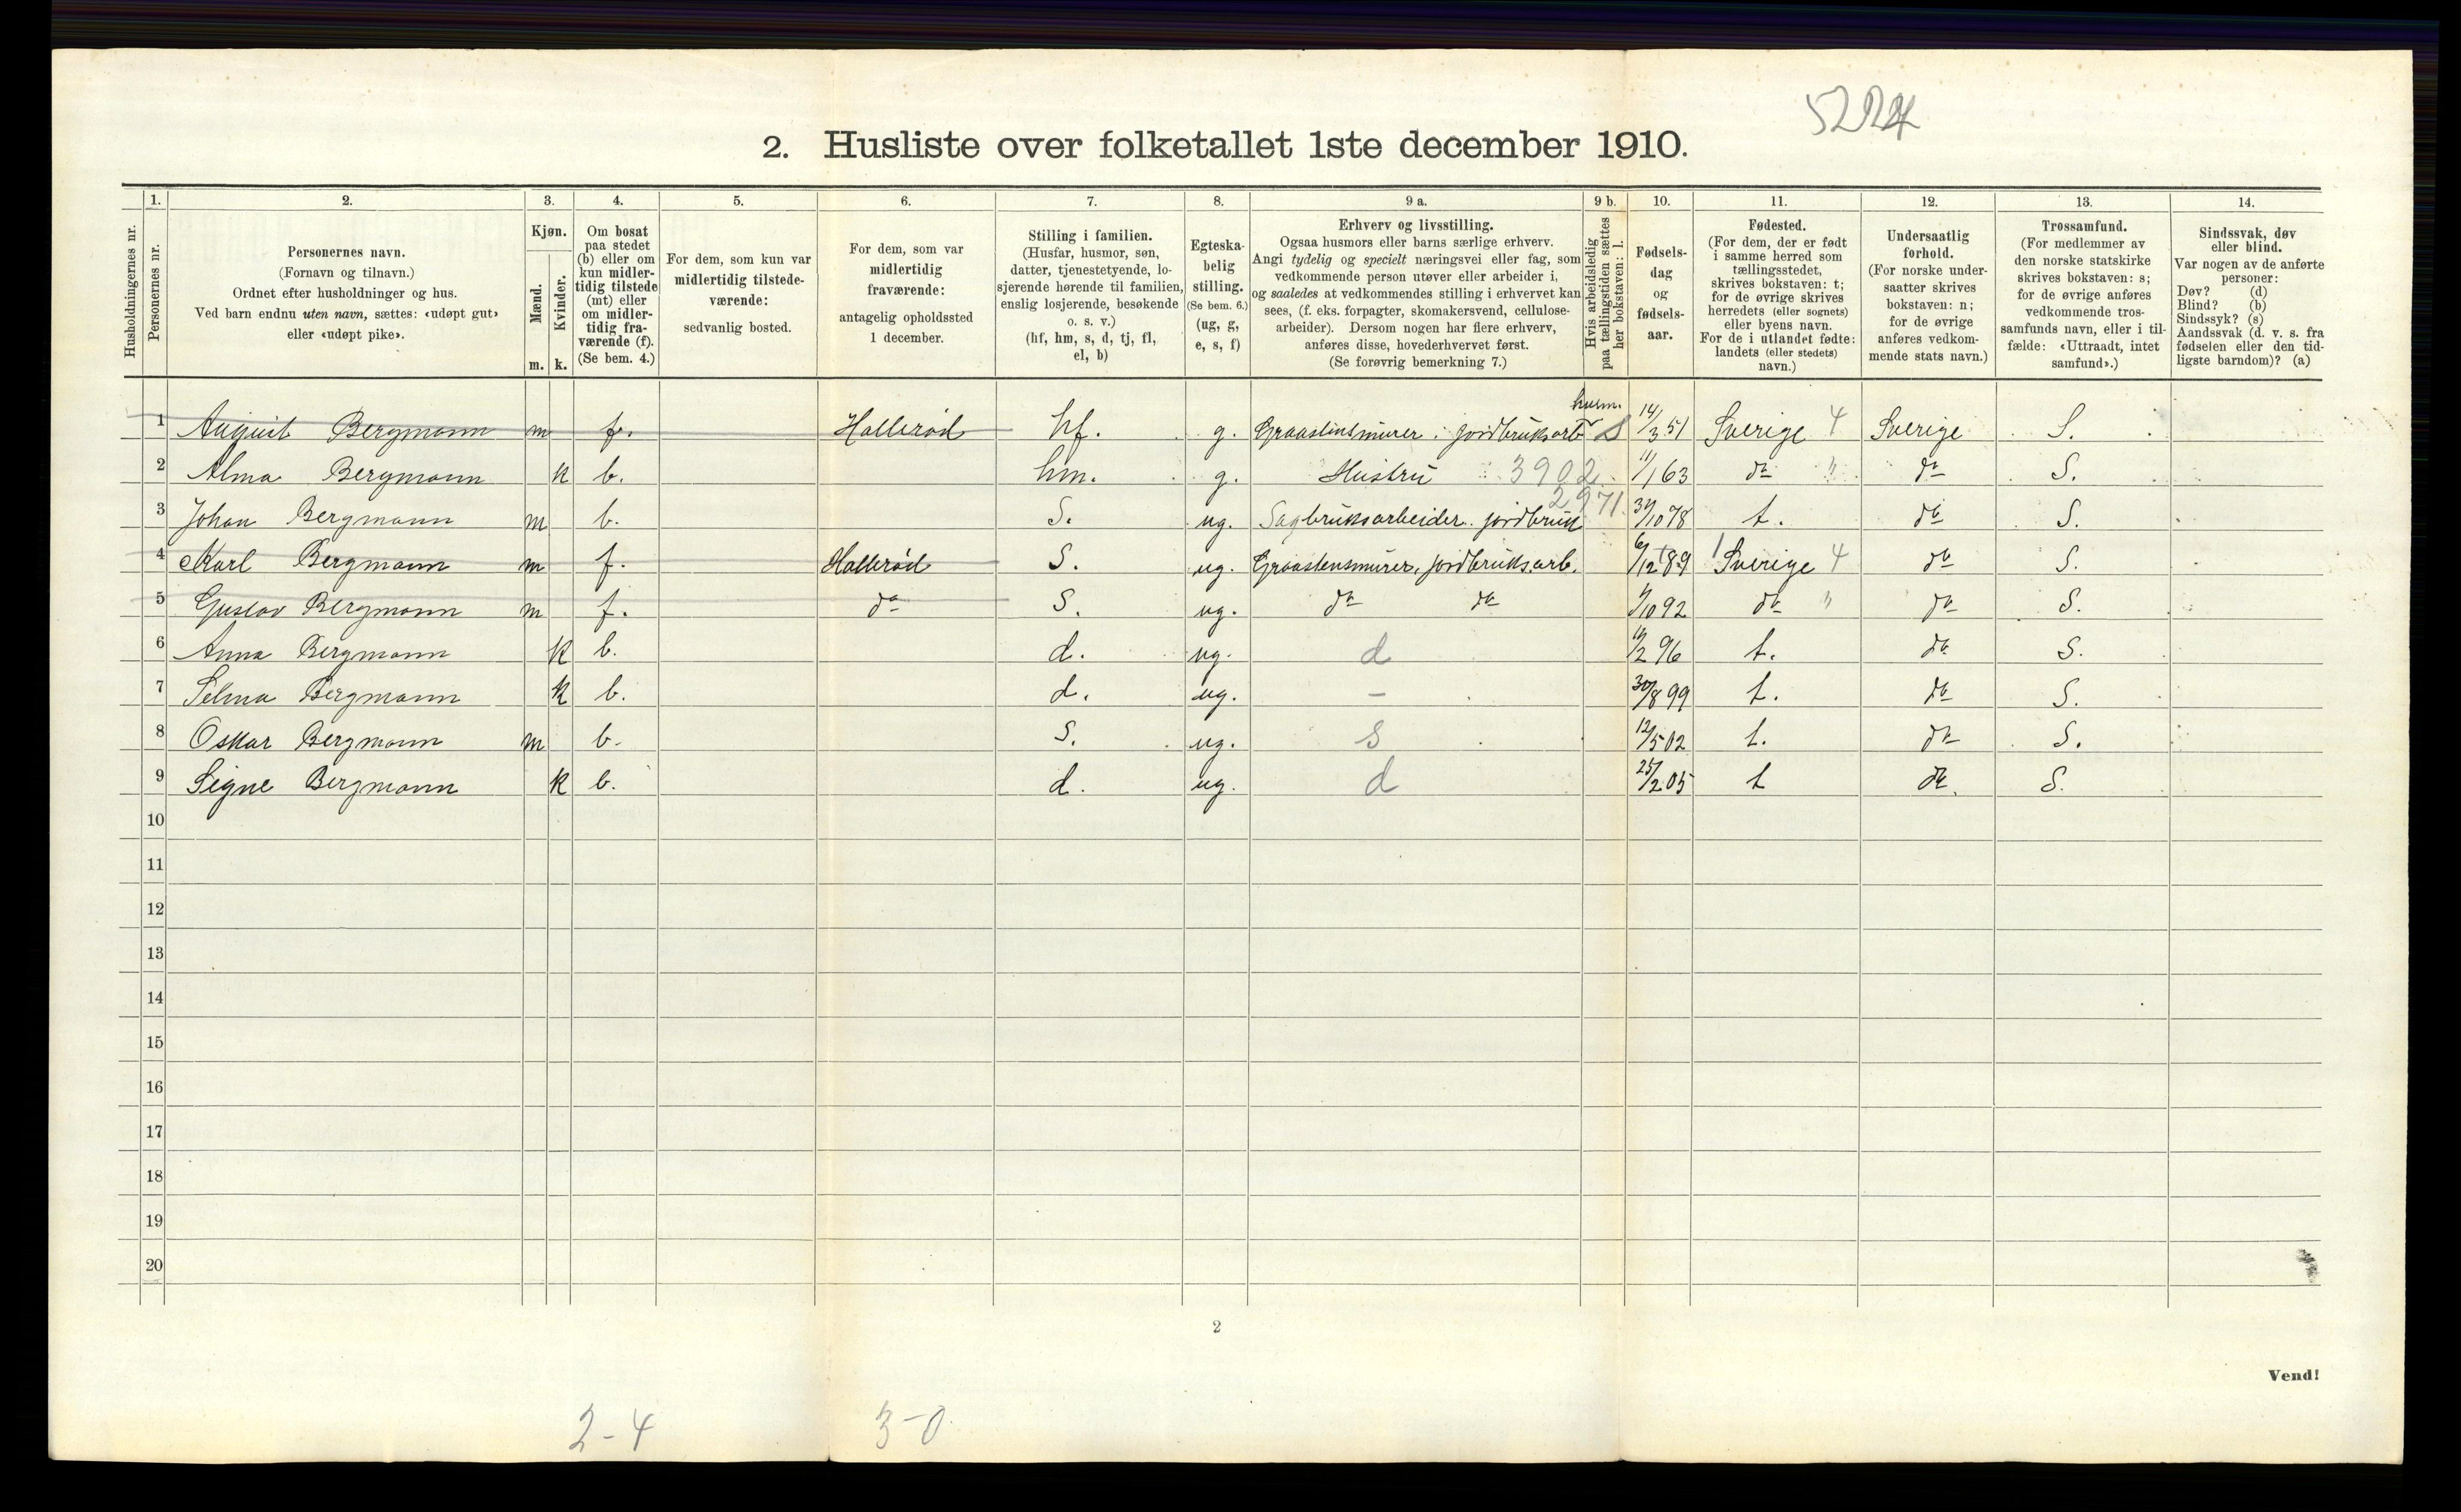 5224
2. Husliste over folketallet 1ste december 1910.
Husholdningernes nr.
1.
Personernes nr.
2.
Personernes navn.
(Fornavn og tilnavn.)
Ordnet efter husholdninger og hus.
Ved barn endnu uten navn, sættes: «udøpt gut»
eller «udøpt pike».
3.
Kjøn.
Mænd.
Kvinder.
m. k.
4.
Om bosat
paa stedet
(b) eller om
kun midler-
tidig tilstede
(mt) eller
om midler-
tidig fra-
værende (f).
(Se bem. 4.)
5.
For dem, som kun var
midlertidig tilstede-
værende:
sedvanlig bosted.
6.
For dem, som var
midlertidig
fraværende:
antagelig opholdssted
1 december.
7.
Stilling i familien.
(Husfar, husmor, søn,
datter, tjenestetyende, lo-
sjerende hørende til familien,
enslig losjerende, besøkende
o. s. v.)
(hf, hm, s, d, tj, fl,
el, b)
8.
Egteska-
belig
stilling.
(Se bem. 6.)
(ug, g,
e, s, f)
9 a.
Erhverv og livsstilling.
Ogsaa husmors eller barns særlige erhverv.
Angi tydelig og specielt næringsvei eller fag, som
vedkommende person utøver eller arbeider i,
og saaledes at vedkommendes stilling i erhvervet kan
sees, (f. eks. forpagter, skomakersvend, cellulose-
arbeider). Dersom nogen har flere erhverv,
anføres disse, hovederhvervet først.
(Se forøvrig bemerkning 7.)
9 b.
Hvis arbeidsledig
paa tællingstiden sættes
her bokstaven: l.
10.
Fødsels-
dag
og
fødsels-
aar.
11.
Fødested.
(For dem, der er født
i samme herred som
tællingsstedet,
skrives bokstaven: t;
for de øvrige skrives
herredets (eller sognets)
eller byens navn.
For de i utlandet fødte:
landets (eller stedets)
navn.)
12.
Undersaatlig
forhold.
(For norske under-
saatter skrives
bokstaven: n;
for de øvrige
anføres vedkom-
mende stats navn.)
13.
Trossamfund.
(For medlemmer av
den norske statskirke
skrives bokstaven: s;
for de øvrige anføres
vedkommende tros-
samfunds navn, eller i til-
fælde: «Uttraadt, intet
samfund».)
14.
Sindssvak, døv
eller blind.
Var nogen av de anførte
personer:
Døv? (d)
Blind? (b)
Sindssyk? (s)
Aandssvak (d. v. s. fra
fødselen eller den tid-
ligste barndom)? (a)
husm.
1 August Bergmann m f. Hallerød hf. g. Graastensmurer. jordbruksarb S 14/3 51 Sverige 4 Sverige S.
2 Alma Bergmann k b. hm. g. Hustru 3902 11/1 63 do " do S.
2971
3 Johan Bergmann m b. S. ug. Sagbruksarbeider. jordbruk /10 78 t. do S.
4 Karl Bergmann m f. Hallerød S. ug. Graastensmurer, jordbruksarb. 6/12 89 Sverige 4 do S.
5 Gustav Bergmann m f. do S. ug. do do /10 92 do " do S.
6 Anna Bergmann k b. d. ug. d /2 96 t. do S.
7 Selma Bergmann k b. d. ug. - 30/8 99 t. do S.
8 Oskar Bergmann m b. S. ug. s 12/5 02 t. do S.
9 Signe Bergmann k b. d. ug. d 25/2 05 t do. S.
10
11
12
13
14
15
16
17
18
19
20
2
Vend!
2-4 3-0